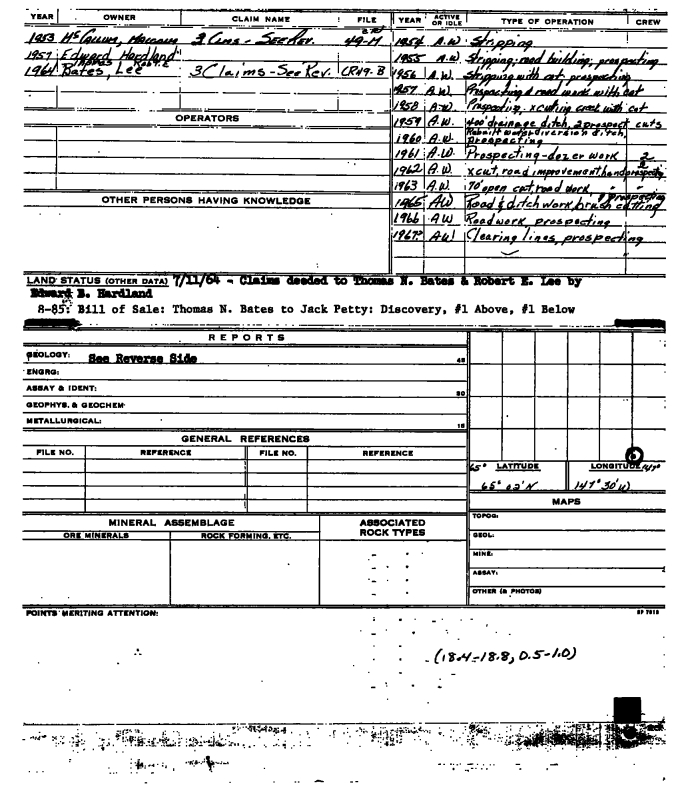 YEAR OWNER CLAIM NAME FILE
1953 McCallum, Malcolm 3 Clms - See Rev. 49-M
1957 Edward Hardland
1964 Bates, Lee 3 Claims - See Rev. CR49-B
OPERATORS
OTHER PERSONS HAVING KNOWLEDGE
YEAR ACTIVE OR IDLE TYPE OF OPERATION CREW
1954 A.W. Stripping
1955 A.W. Stripping, road building, prospecting
1956 A.W. Stripping with cat, prospecting
1957 A.W. Prospecting & road work with cat
1958 A.W. Prospecting. xcutting creek with cat
1959 A.W. 400' drainage ditch, 2 prospect cuts
1960 A.W. Rebuilt water diversion ditch, prospecting
1961 A.W. Prospecting - dozer work 2
1962 A.W. xcut, road improvement, hand prospecting 2
1963 A.W. 70' open cut, road work, " "
1965 AW Road & ditch work, brush cutting & prospecting
1966 AW Roadwork, prospecting
1967 AW Clearing lines, prospecting
LAND STATUS (OTHER DATA) 7/11/64 - Claims deeded to Thomas N. Bates & Robert E. Lee by
Edward B. Hardland
8-85: Bill of Sale: Thomas N. Bates to Jack Petty: Discovery, #1 Above, #1 Below
REPORTS
GEOLOGY: See Reverse Side 45
ENGRG:
ASSAY & IDENT: 30
GEOPHYS. & GEOCHEM
METALLURGICAL: 15
GENERAL REFERENCES
FILE NO. REFERENCE FILE NO. REFERENCE
65° LATITUDE LONGITUDE 147°
65° 02' N 147° 30' W
MAPS
TOPOG:
GEOL:
MINE:
ASSAY:
OTHER (& PHOTOS)
MINERAL ASSEMBLAGE
ORE MINERALS ROCK FORMING, ETC.
ASSOCIATED ROCK TYPES
POINTS MERITING ATTENTION:
(18.4-18.8, 0.5-1.0)